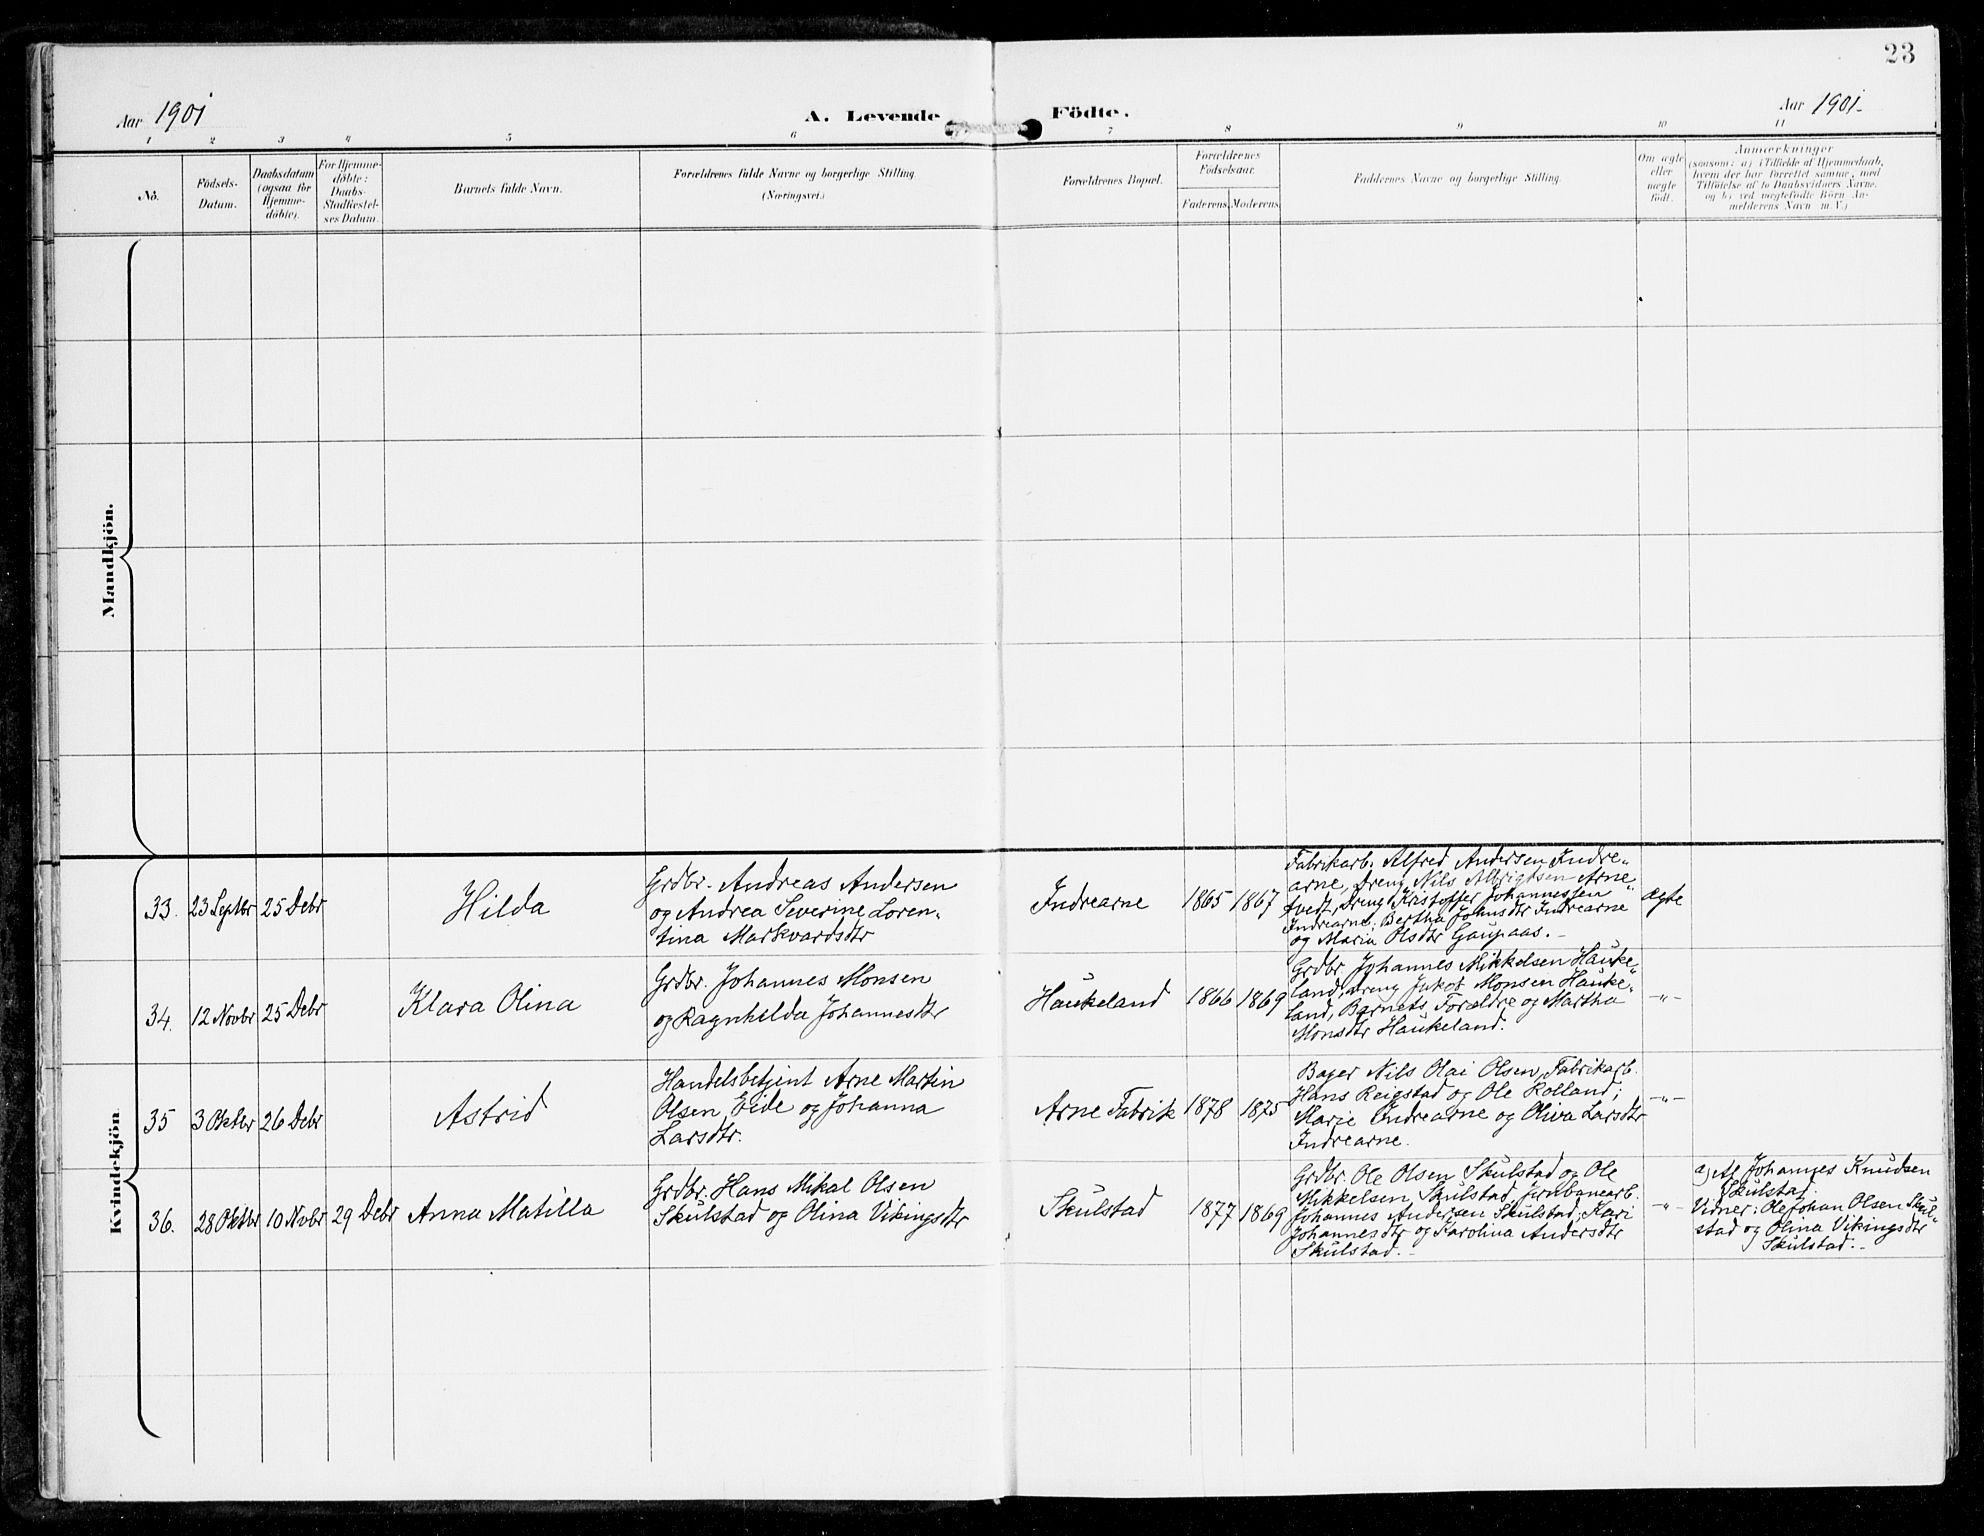 23
Aar 1901
A. Levende Födte.
Aar 1901.
1 2 3 4 5 6 7 8 9 10 11
No.
Födsels-
Datum.
Daabsdatum
(ogsaa for
Hjemme-
döbte).
For Hjemme-
döbte:
Daabs-
Stadfæstel-
ses Datum.
Barnets fulde Navn.
Forældrenes fulde Navne og borgerlige Stilling
(Næringsvei.)
Forældrenes Bopæl.
Forældrenes
Födselsaar.
Faderens. Moderens.
Faddernes Navne og borgerlige Stilling.
Om ægte
eller
uægte
födt.
Anmærkninger
(saasom: a) i Tilfælde af Hjemmedaab,
hvem der har forrettet samme, med
Tilföielse af to Daabsvidners Navne.
og b) ved uægtefödte Börn An-
melderens Navn m. V.)
Mandkjön.
Kvindekjön.
33. 23 Septbr 25 Debr
Hilda
Grdbr. Andreas Andersen
og Andrea Severine Loren-
tina Markvardsdtr
Indrearne
1865 1867
Fabrikarb. Alfred Andersen Indre-
arne, Dreng Nils Albrigtsen Arne-
tvedt, Dreng Kristoffer Johannessen
Indrearne; Bertha Johnsdtr Indrearne
og Maria Olsdtr Gaupaas.-
ægte
34. 12 Novbr 25 Debr
Klara Olina
Grdbr. Johannes Monsen
og Ragnhilda Johannesdtr
Haukeland
1866 1869
Grdbr Johannes Mikkelsen Hauke-
land, Dreng Jakob Monsen Hauke-
land, Barnets Forældre og Martha
Monsdtr Haukeland.
-"-
35 3 Oktbr 26 Debr
Astrid
Handelsbetjent Arne Martin
Olsen Eide og Johanna
Larsdtr.
Arne Fabrik
1878 1875
Bager Nils Olai Olsen, Fabrikarb.
Hans Reigstad og Ole Rolland;
Marie Indrearne og Oliva Larsdtr
Indrearne.
-"-
36. 28 Oktbr 10 Novbr 29 Debr
Anna Matilla
Grdbr. Hans Mikal Olsen
Skulstad og Olina Vikingsdtr
Skulstad
1877 1869
Grdbr. Ole Olsen Skulstad og Ole
Mikkelsen Skulstad, Jernbanearb.
Johannes Andersen Skulstad; Kari
Johannesdtr og Karolina Andersdtr
Skulstad.-
-"-
a) Af Johannes Knudsen
Skulstad.
Vidner: Ole Johan Olsen Skul-
stad og Olina Vikingsdtr
Skulstad.-